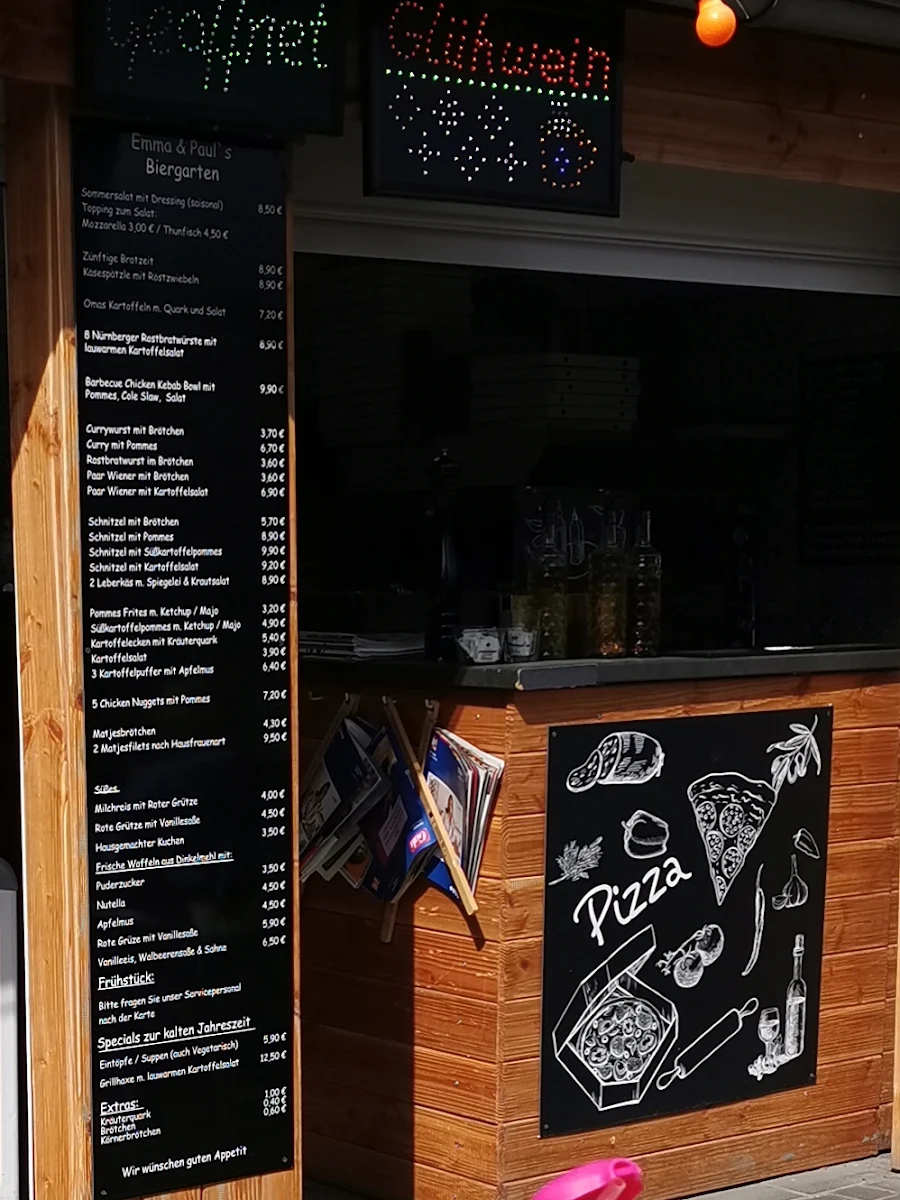 Geöffnet
Glühwein
Emma & Paul`s
Biergarten
Sommersalat mit Dressing (saisonal) 8,50 €
Topping zum Salat:
Mozzarella 3,00 € / Thunfisch 4,50 €
Zünftige Brotzeit 8,90 €
Käsespätzle mit Röstzwiebeln 8,90 €
Omas Kartoffeln m. Quark und Salat 7,20 €
8 Nürnberger Rostbratwürste mit 8,90 €
lauwarmen Kartoffelsalat
Barbecue Chicken Kebab Bowl mit 9,90 €
Pommes, Cole Slaw, Salat
Currywurst mit Brötchen 3,70 €
Curry mit Pommes 6,70 €
Rostbratwurst im Brötchen 3,60 €
Paar Wiener mit Brötchen 3,60 €
Paar Wiener mit Kartoffelsalat 6,90 €
Schnitzel mit Brötchen 5,70 €
Schnitzel mit Pommes 8,90 €
Schnitzel mit Süßkartoffelpommes 9,90 €
Schnitzel mit Kartoffelsalat 9,20 €
2 Leberkäs m. Spiegelei & Krautsalat 8,90 €
Pommes Frites m. Ketchup / Majo 3,20 €
Süßkartoffelpommes m. Ketchup / Majo 4,90 €
Kartoffelecken mit Kräuterquark 5,40 €
Kartoffelsalat 3,90 €
3 Kartoffelpuffer mit Apfelmus 6,40 €
5 Chicken Nuggets mit Pommes 7,20 €
Matjesbrötchen 4,30 €
2 Matjesfilets nach Hausfrauenart 9,50 €
Süßes
Milchreis mit Roter Grütze 4,00 €
Rote Grütze mit Vanillesoße 4,50 €
Hausgemachter Kuchen 3,50 €
Frische Waffeln aus Dinkelmehl mit:
Puderzucker 3,50 €
Nutella 4,50 €
Apfelmus 4,50 €
Rote Grüze mit Vanillesoße 5,90 €
Vanilleeis, Walbeerensoße & Sahne 6,50 €
Frühstück:
Bitte fragen Sie unser Servicepersonal
nach der Karte
Specials zur kalten Jahreszeit
Eintöpfe / Suppen (auch Vegetarisch) 5,90 €
Grillhaxe m. lauwarmen Kartoffelsalat 12,50 €
Extras:
Kräuterquark 1,00 €
Brötchen 0,40 €
Körnerbrötchen 0,60 €
Wir wünschen guten Appetit
Pizza